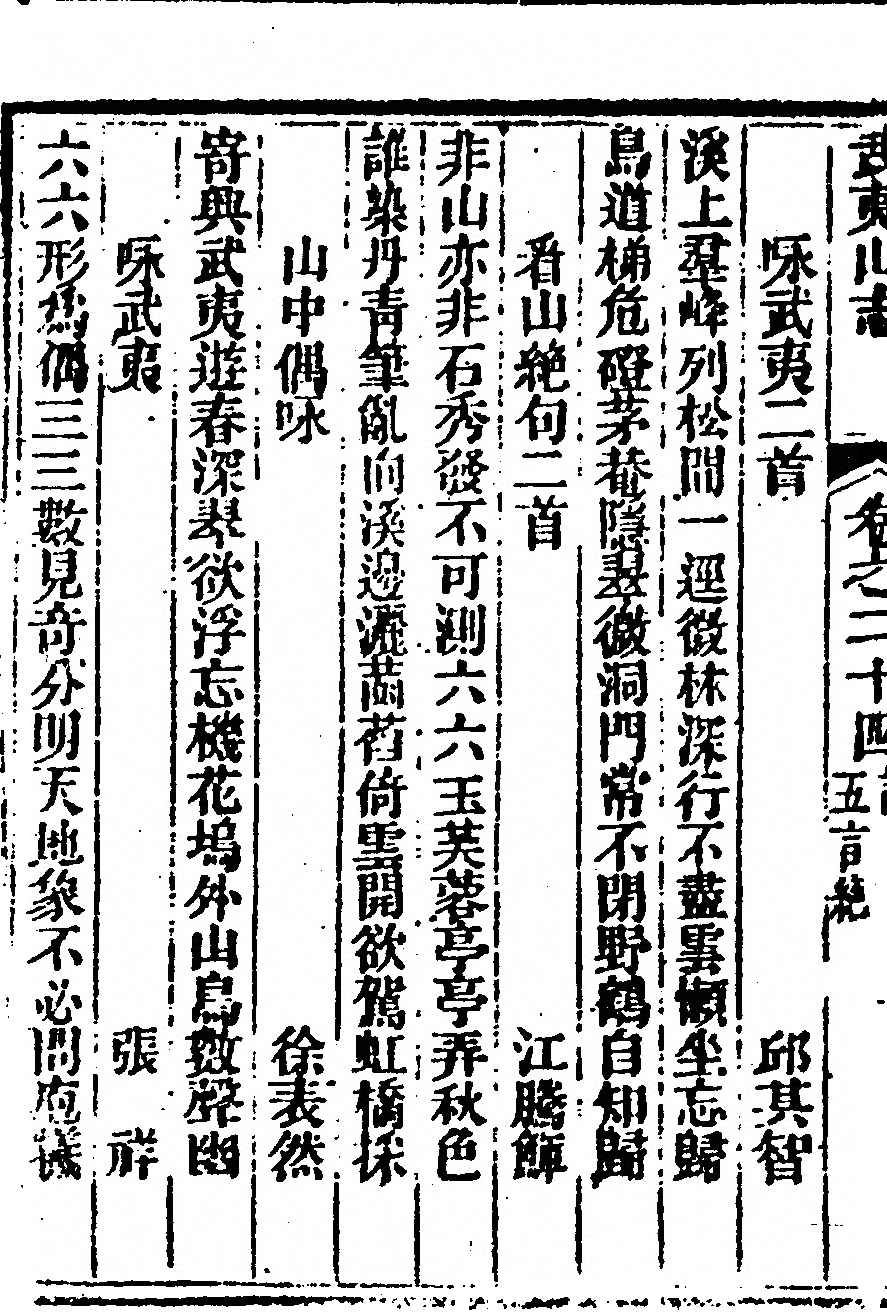 武夷山志 卷之二十四 五言絶
咏武夷二首 邱其智
溪上羣峰列松間一逕微林深行不盡雲懶坐忘歸
鳥道梯危磴茅菴隱翠微洞門常不閉野鶴自知歸
看山絶句二首 江騰鯶
非山亦非石秀發不可測六六玉芙蓉亭亭弄秋色
誰染丹青筆亂向溪邊灑菡萏倚雲開欲駕虹橋採
山中偶咏 徐表然
寄興武夷遊春深翠欲浮忘機花塢外山鳥數聲幽
咏武夷 張祥
六六形爲偶三三數見奇分明天地象不必問庖犧